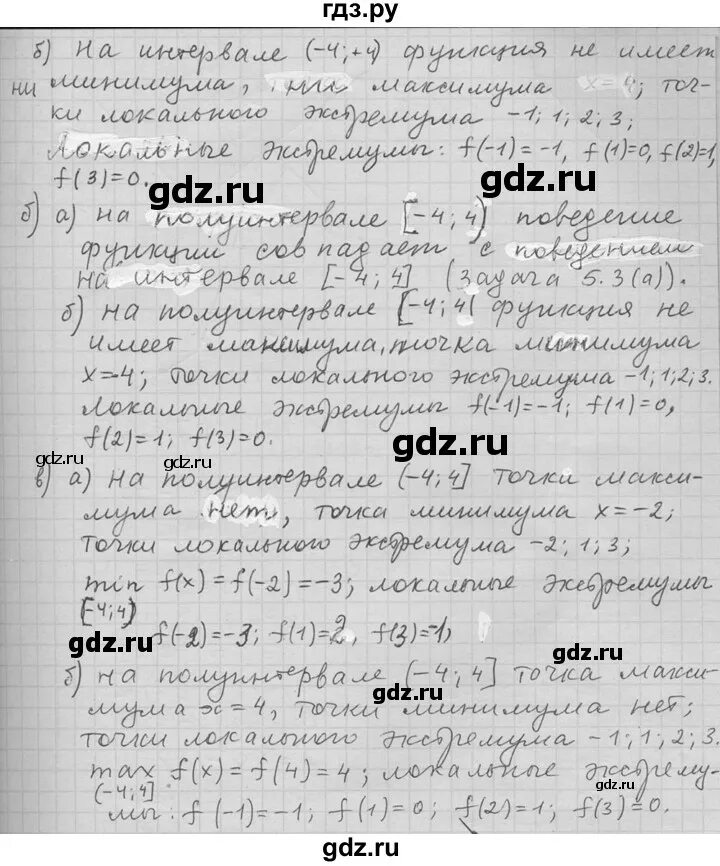 гдз.ру
б) на интервале (-4;+4) функция не имеет
ни минимума, ни максимума x=4; точ-
ки локального экстремума -1; 1; 2; 3;
Локальные экстремумы: f(-1)=-1, f(1)=0, f(2)=1,
f(3)=0.
gdz.ru gdz.ru
б) а) на полуинтервале [-4; 4) поведение
функции совпадает с поведением
на интервале [-4; 4] (Задача 5.3(а)).
б) на полуинтервале [-4; 4( функция не
имеет максимума, точка минимума
x=-4; точки локального экстремума -1; 1; 2; 3.
Локальные экстремумы f(-1)=-1; f(1)=0,
f(2)=1; f(3)=0. gdz.ru
gdz.ru gdz.ru gdz.ru
в) а) на полуинтервале (-4; 4] точки макси-
мума нет, точка минимума x=-2;
точки локального экстремума -2; 1; 3;
min f(x)=f(-2)=-3; локальные экстремумы
[-4;4)
f(-2)=-3; f(1)=2, f(3)=-1,
gdz.ru gdz.ru
б) на полуинтервале (-4; 4] точка макси-
gdz.ru
мума x=4, точки минимума нет;
точки локального экстремума -1; 1; 2; 3.
max f(x)=f(4)=4; локальные экстрему-
(-4;4]
мы: f(-1)=-1; f(1)=0; f(2)=1; f(3)=0.
gdz.ru gdz.ru